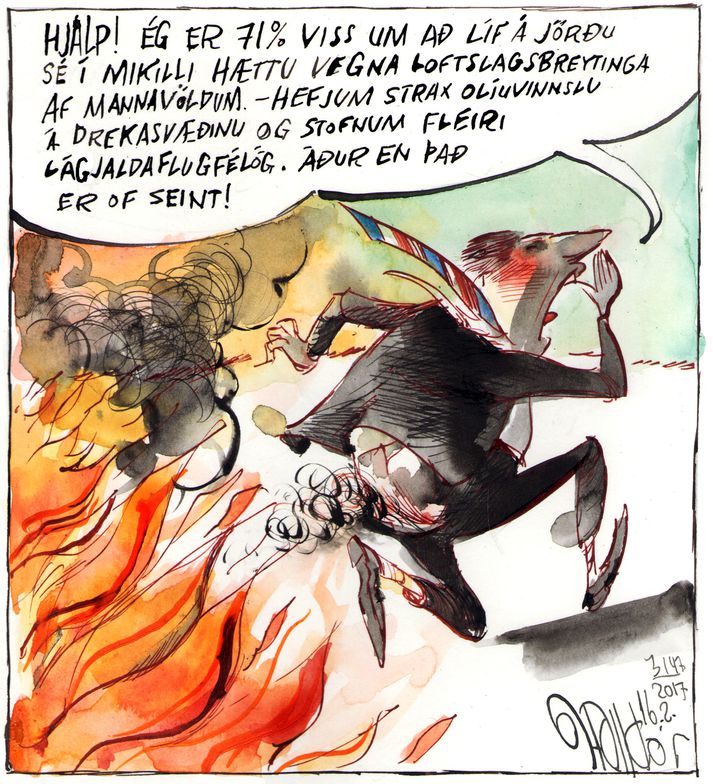 HJÁLP! ÉG ER 71% VISS UM AÐ LÍF Á JÖRÐU
SÉ Í MIKILLI HÆTTU VEGNA LOFTSLAGSBREYTINGA
AF MANNAVÖLDUM. - HEFJUM STRAX OLÍUVINNSLU
Á DREKASVÆÐINU OG STOFNUM FLEIRI
LÁGJALDAFLUGFÉLÖG. ÁÐUR EN ÞAÐ
ER OF SEINT!
2017
16.2.
Halldór